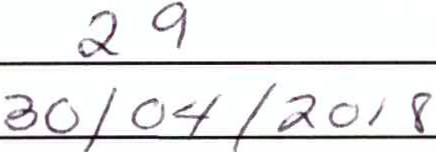 29
30/04/2018